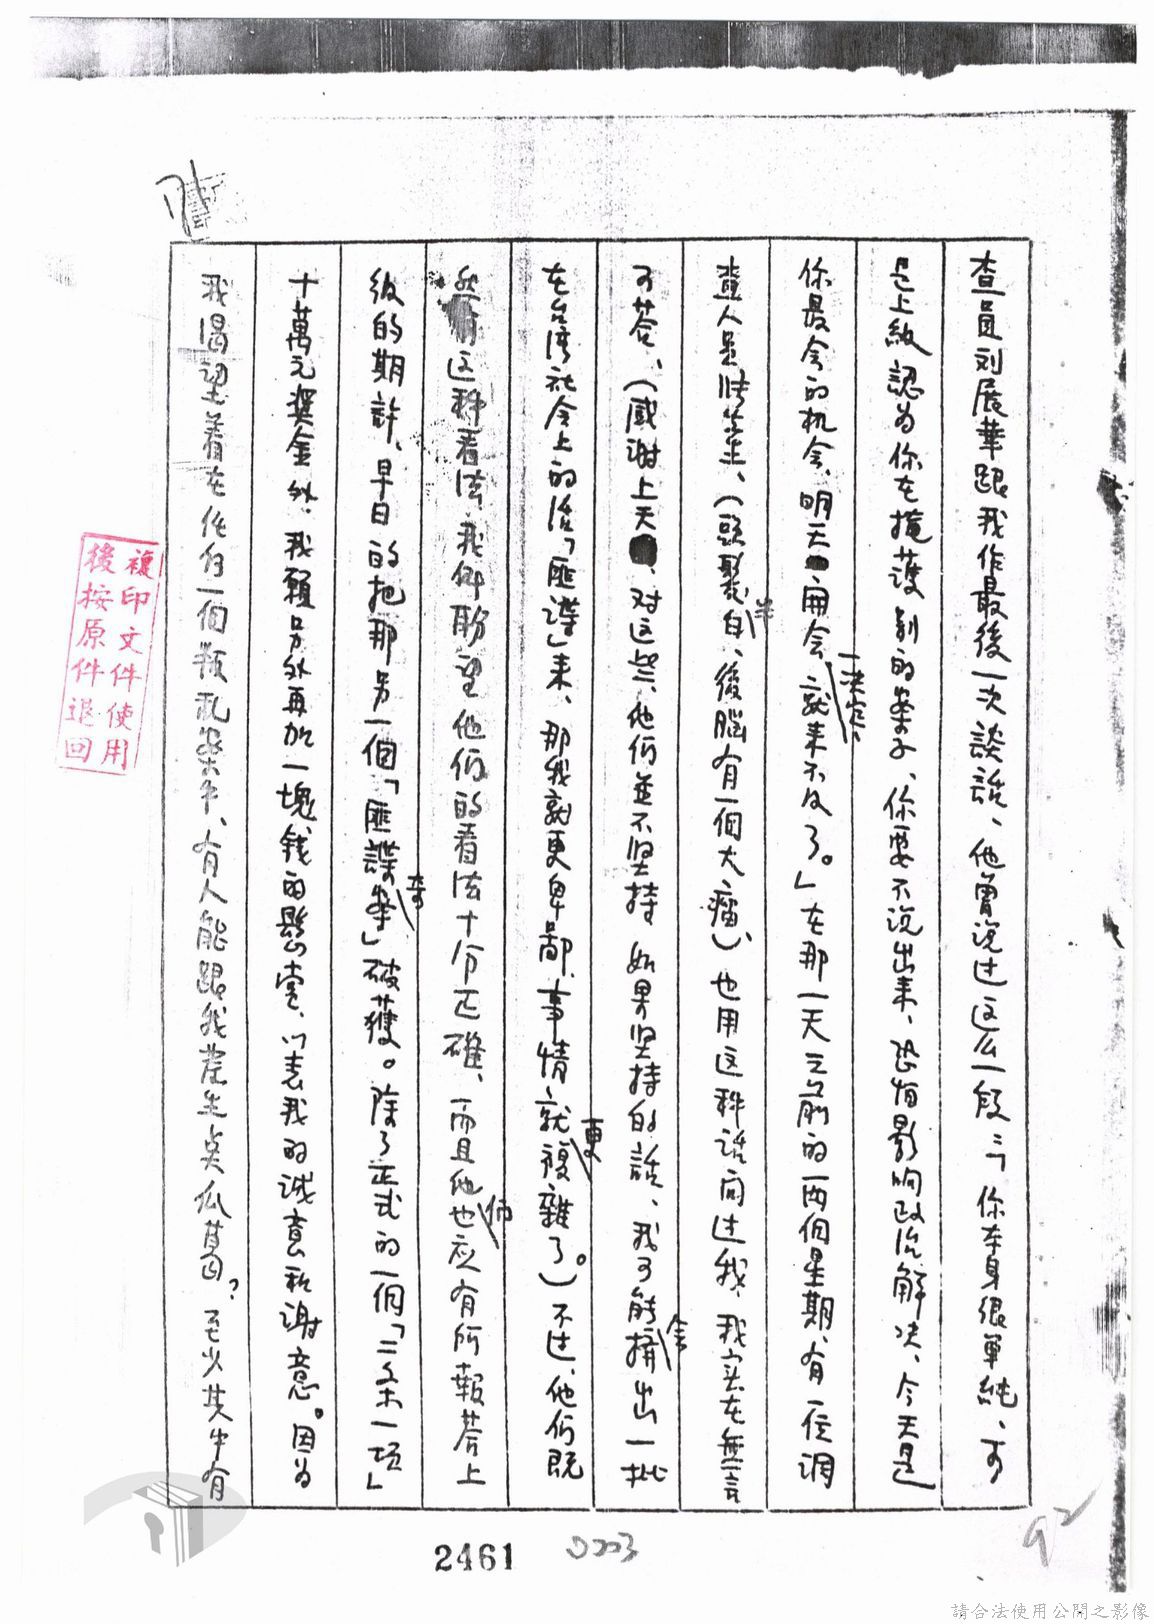 查員刘展華跟我作最後一次談話、他曾说过这么一段：「你本身很單純、可
是上級認为你在掩護别的案子、你要不说出来、恐怕影响政治解决、今天是
你最后的机会、明天开会一决定、就来不及了。」在那一天之前的两個星期、有一位調
查人員 (頭髮半白、後腦有一個大瘤)、也用这种話问过我、我实在無言
可答、(感谢上天、对这些、他们並不坚持 如果坚持的話、我可能会擠出一批
在台湾社会上的活「匪諜」来、那我就更卑鄙、事情就更複雜了。) 不过、他们既
然有这种看法、我仰盼望他们的看法十分正確、而且他们也应有所報答上
级的期許、早日的把那另一個「匪諜奇案」破獲。除了正式的一個「二条一项」
十萬元奖金外、我願另外再加一塊钱的懸賞、以表我的诚意和谢意。因为
我渴望着在任何一個叛乱案中、有人能跟我发生点瓜葛？至少其中有
複印文件使用
後按原件退回
2461
92
請合法使用公開之影像